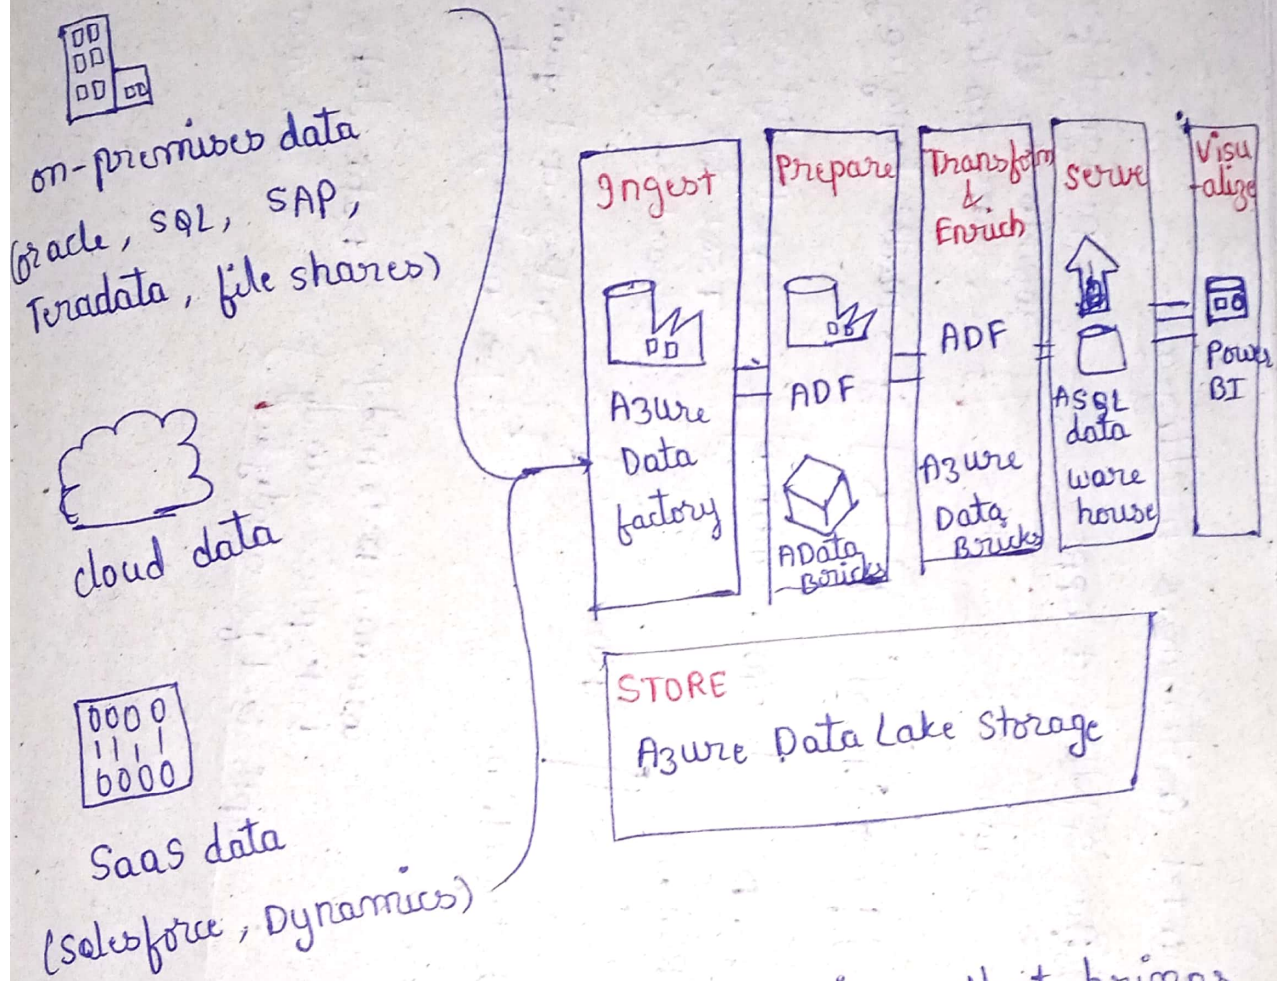 on-premises data
(oracle, SQL, SAP,
Teradata, file shares)
cloud data
0000
1111
0000
SaaS data
(Salesforce, Dynamics)
Ingest
Azure
Data
factory
Prepare
ADF
AData
Bricks
Transform
&
Enrich
ADF
Azure
Data
Bricks
Serve
ASQL
data
ware
house
Visu
-alize
Power
BI
STORE
Azure Data Lake Storage